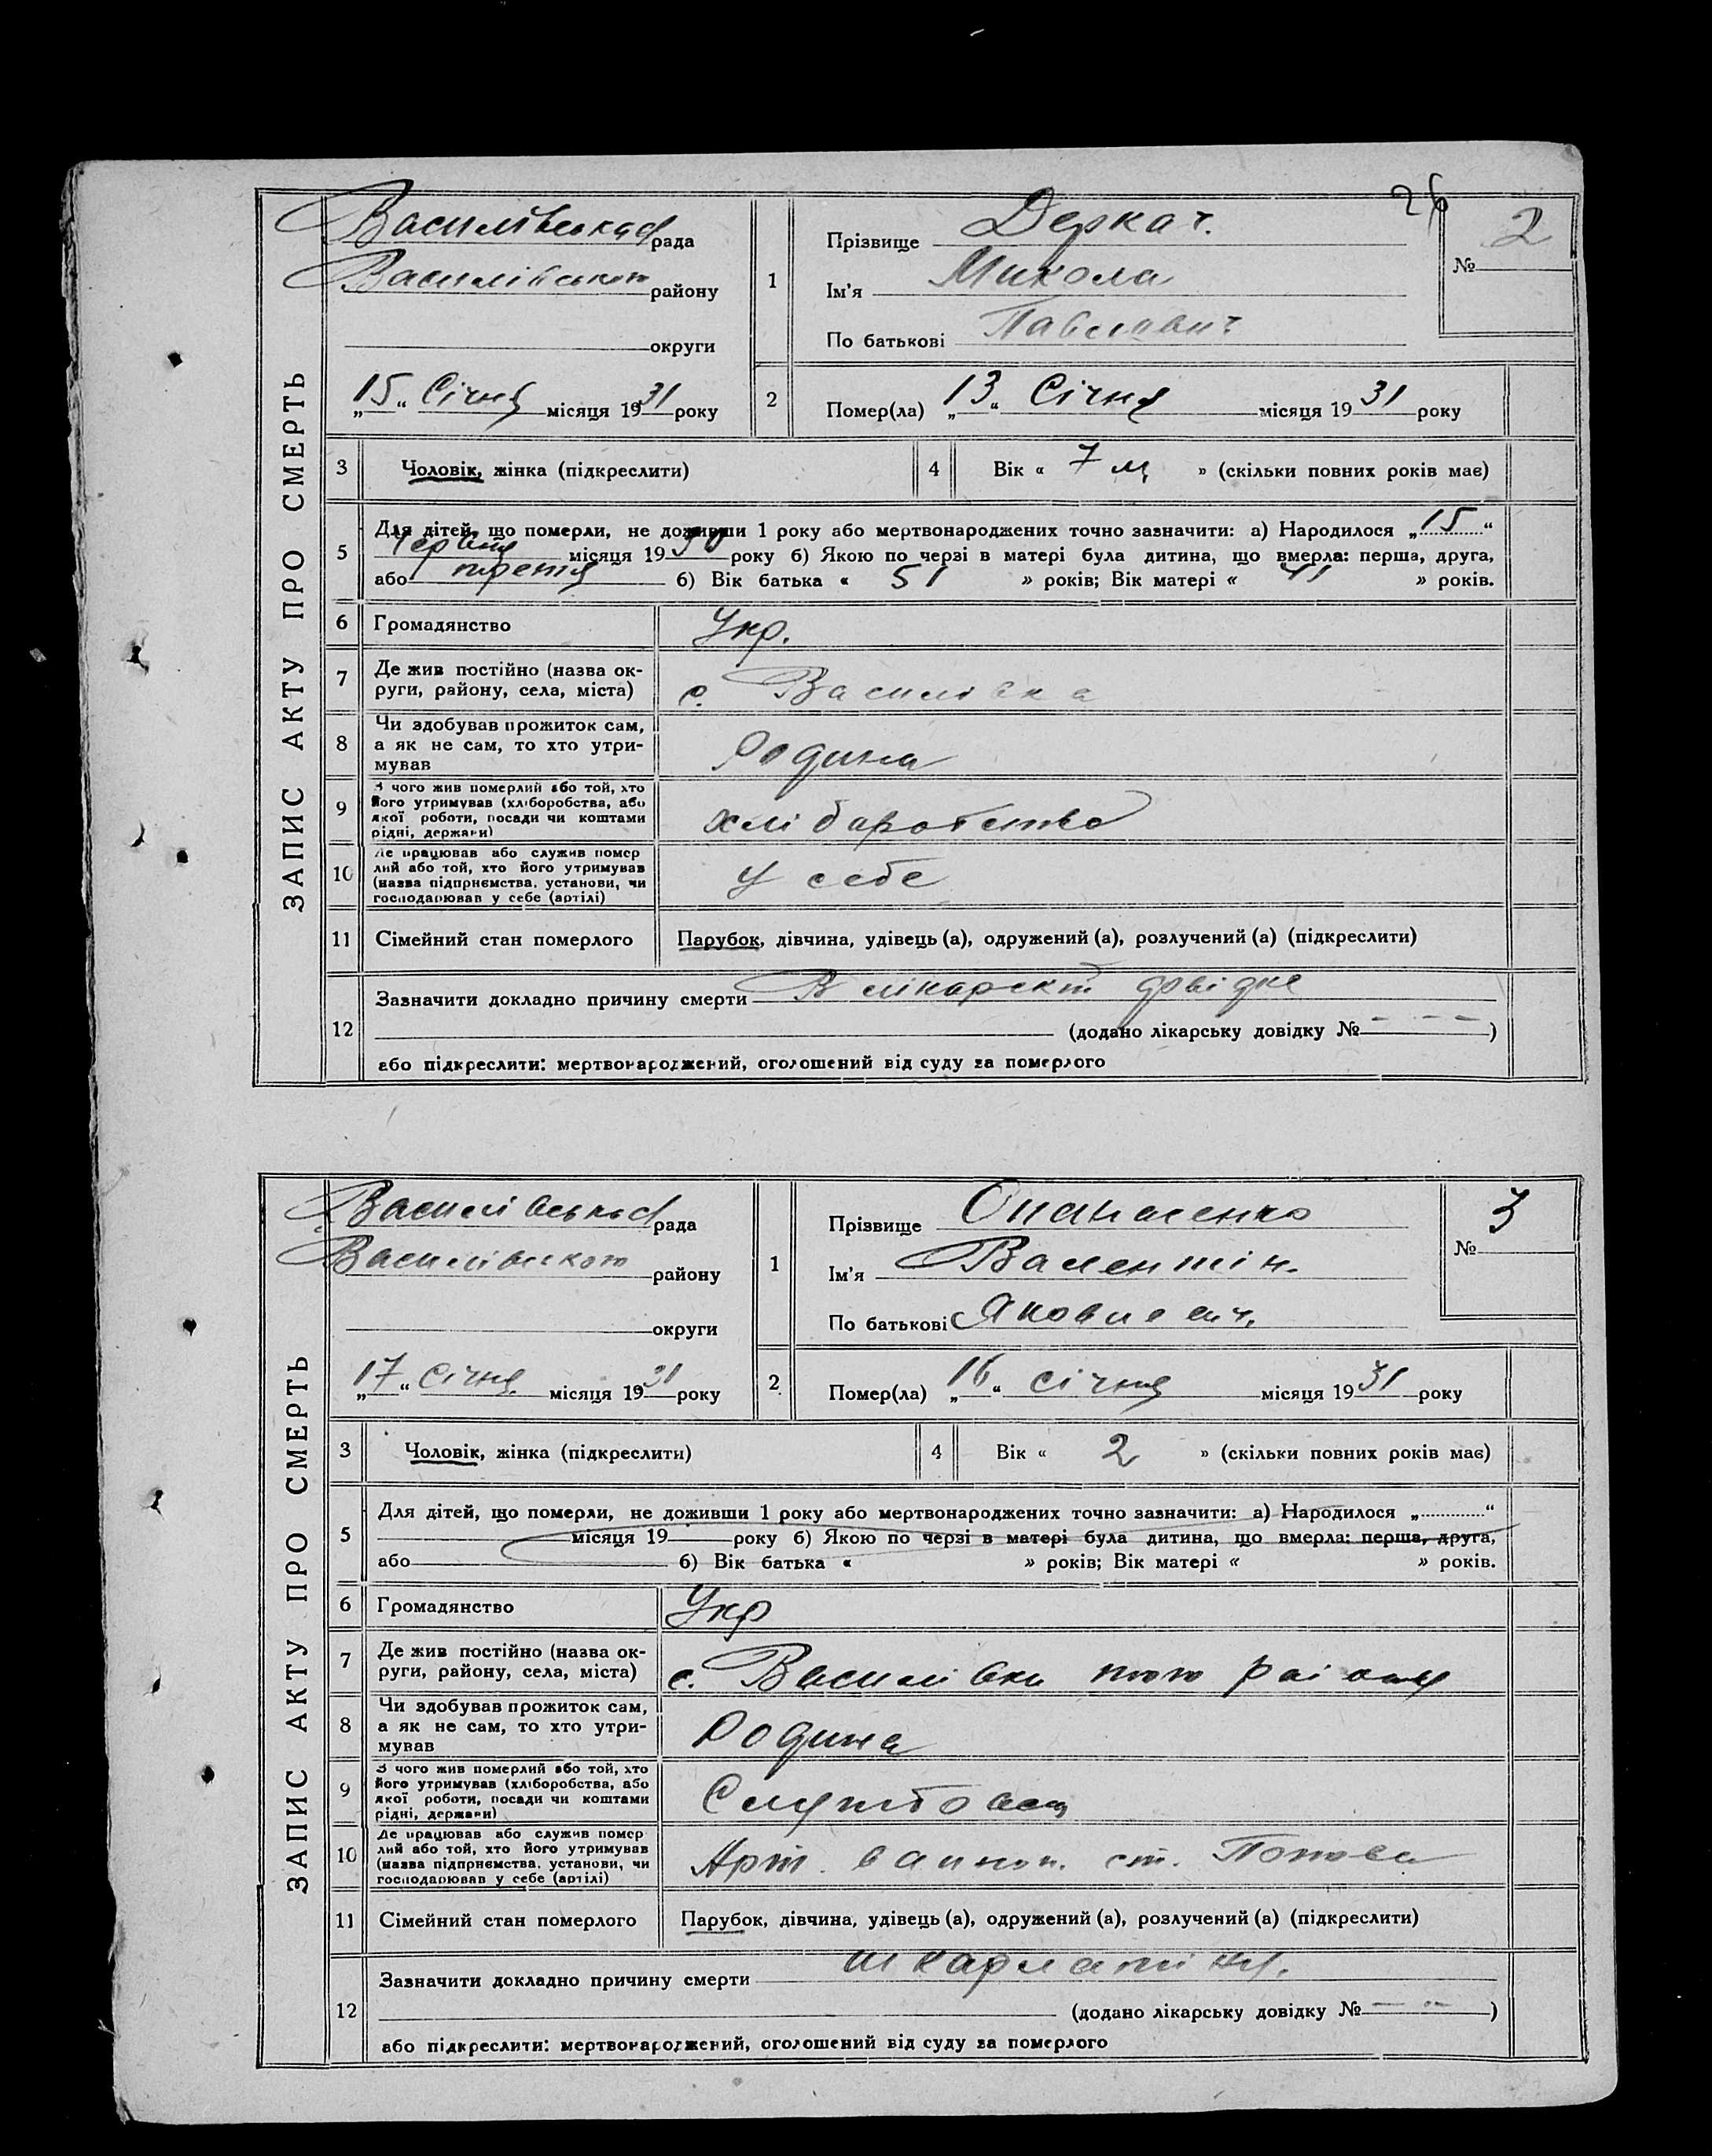 ЗАПИС АКТУ ПРО СМЕРТЬ
26
Василівська рада
Василівського району
округи
„15“ Січня місяця 1931 року
1
Прізвище Деркач.
Ім'я Микола
По батькові Павлович
№ 2
2
Помер(ла) „13“ Січня місяця 1931 року
3 Чоловік, жінка (підкреслити)
4 Вік « 7 м » (скільки повних років має)
5
Для дітей, що померли, не доживши 1 року або мертвонароджених точно зазначити: а) Народилося „15“
Червня місяця 1930 року б) Якою по черзі в матері була дитина, що вмерла: перша, друга,
або третя б) Вік батька « 51 » років; Вік матері « 41 » років.
6 Громадянство Укр.
7 Де жив постійно (назва ок-
руги, району, села, міста)
с. Василівка
8 Чи здобував прожиток сам,
а як не сам, то хто утри-
мував
Родина
9 З чого жив померлий або той, хто
його утримував (хліборобства, або
якої роботи, посади чи коштами
рідні, держави)
хліборобство
10 Де працював або служив помер
лий або той, хто його утримував
(назва підприємства, установи, чи
господарював у себе (артілі)
У себе
11 Сімейний стан померлого Парубок, дівчина, удівець (а), одружений (а), розлучений (а) (підкреслити)
12
Зазначити докладно причину смерти В лікарскі
(додано лікарську довідку № - - - )
або підкреслити: мертвонароджений, оголошений від суду за померлого
ЗАПИС АКТУ ПРО СМЕРТЬ
Василівська рада
Василівського району
округи
„17“ Січня місяця 1931 року
1
Прізвище Опанасенко
Ім'я Валентін.
По батькові Якович.
№ 3
2
Помер(ла) „16“ січня місяця 1931 року
3 Чоловік, жінка (підкреслити)
4 Вік « 2 » (скільки повних років має)
5
Для дітей, що померли, не доживши 1 року або мертвонароджених точно зазначити: а) Народилося „ “
місяця 19 року б) Якою по черзі в матері була дитина, що вмерла: перша, друга,
або б) Вік батька « » років; Вік матері « » років.
6 Громадянство Укр
7 Де жив постійно (назва ок-
руги, району, села, міста)
с. Василівка того району
8 Чи здобував прожиток сам,
а як не сам, то хто утри-
мував
Родина
9 З чого жив померлий або той, хто
його утримував (хліборобства, або
якої роботи, посади чи коштами
рідні, держави)
Службовец
10 Де працював або служив помер
лий або той, хто його утримував
(назва підприємства, установи, чи
господарював у себе (артілі)
Арт. ст. Попова
11 Сімейний стан померлого Парубок, дівчина, удівець (а), одружений (а), розлучений (а) (підкреслити)
12
Зазначити докладно причину смерти шкарлатіна.
(додано лікарську довідку № - - )
або підкреслити: мертвонароджений, оголошений від суду за померлого